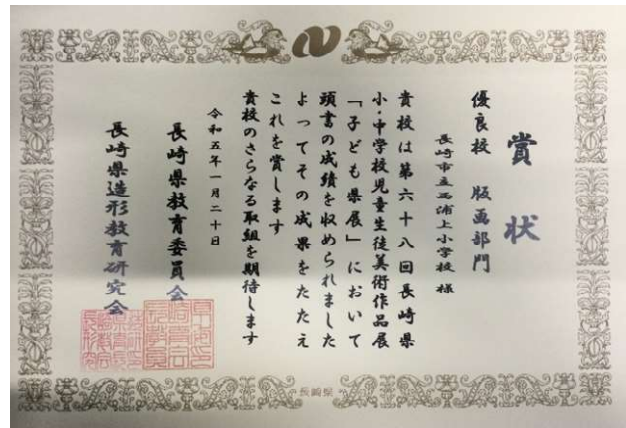 賞状
優良校 版画部門
長崎市立西浦上小学校 様
貴校は第六十八回長崎県
小・中学校児童生徒美術作品展
「子ども県展」において
頭書の成績を収められました
よってその成果をたたえ
これを賞します
貴校のさらなる取組を期待します
令和五年一月二十日
長崎県教育委員会
長崎県造形教育研究会
長崎県